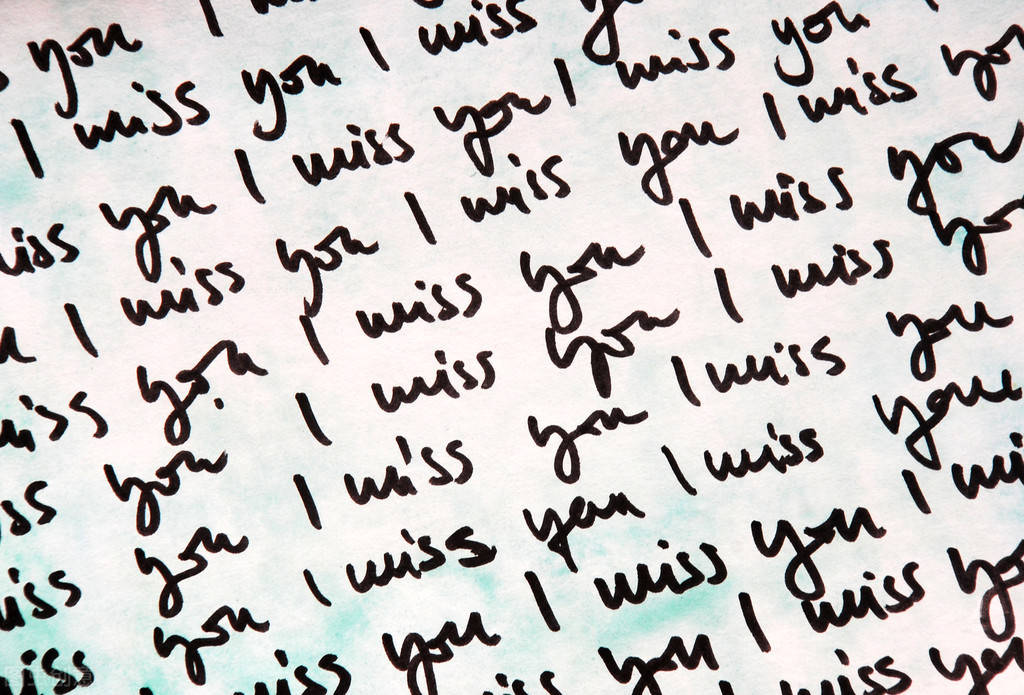 you I
I miss you I miss you
miss you I miss you I miss you
I miss you I miss you I miss you
miss you I miss you I miss you
you I miss you I miss you
miss you I miss you I miss you
miss you I miss you I miss you
I miss you I miss you I
miss you I miss you
I miss you